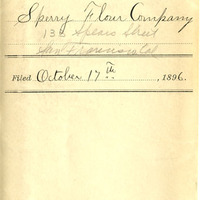 Sperry Flour Company
134 Spears Street
San Francisco Cal
Filed October 17th, 1896.